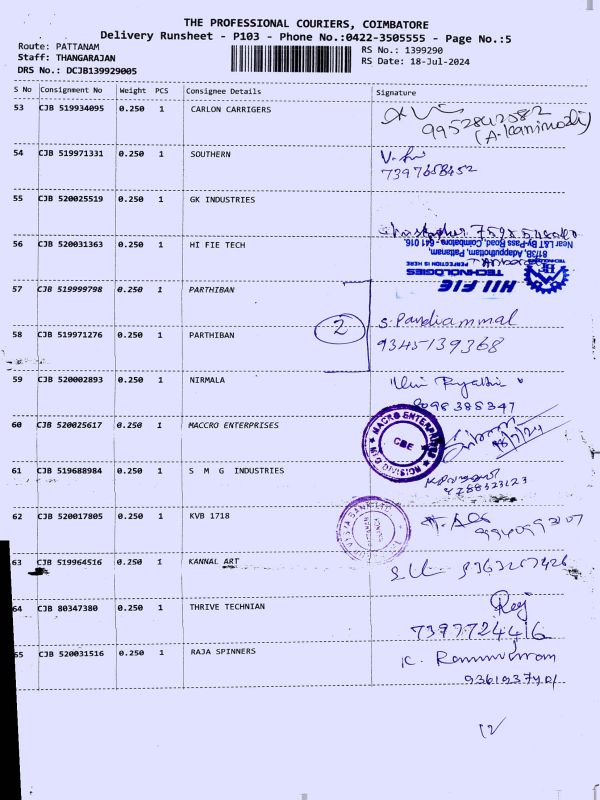 THE PROFESSIONAL COURIERS, COIMBATORE
Delivery Runsheet - P103 - Phone No.:0422-3505555 - Page No.:5
Route: PATTANAM
RS No.: 1399290
Staff: THANGARAJAN
RS Date: 18-Jul-2024
DRS No.: DCJB139929005
S No Consignment No Weight PCS Consignee Details Signature
53 CJB 519934095 0.250 1 CARLON CARRIGERS
9952842582
54 CJB 519971331 0.250 1 SOUTHERN
7397658452
55 CJB 520025519 0.250 1 GK INDUSTRIES
56 CJB 520031363 0.250 1 HI FIE TECH
HII FIE
TECHNOLOGIES
PERFECTION IS HERE
81/3B, Adapputhottam, Pattanam,
Near L&T By-Pass Road, Coimbatore - 641 016.
57 CJB 519999798 0.250 1 PARTHIBAN
2
58 CJB 519971276 0.250 1 PARTHIBAN
S. Pandiammal
9345139368
59 CJB 520002893 0.250 1 NIRMALA
8098388347
60 CJB 520025617 0.250 1 MACCRO ENTERPRISES
MACRO ENTERPRISES
CBE
18/7/24
61 CJB 519688984 0.250 1 S M G INDUSTRIES
62 CJB 520017805 0.250 1 KVB 1718
63 CJB 519964516 0.250 1 KANNAL ART
64 CJB 80347380 0.250 1 THRIVE TECHNIAN
7397724416
65 CJB 520031516 0.250 1 RAJA SPINNERS